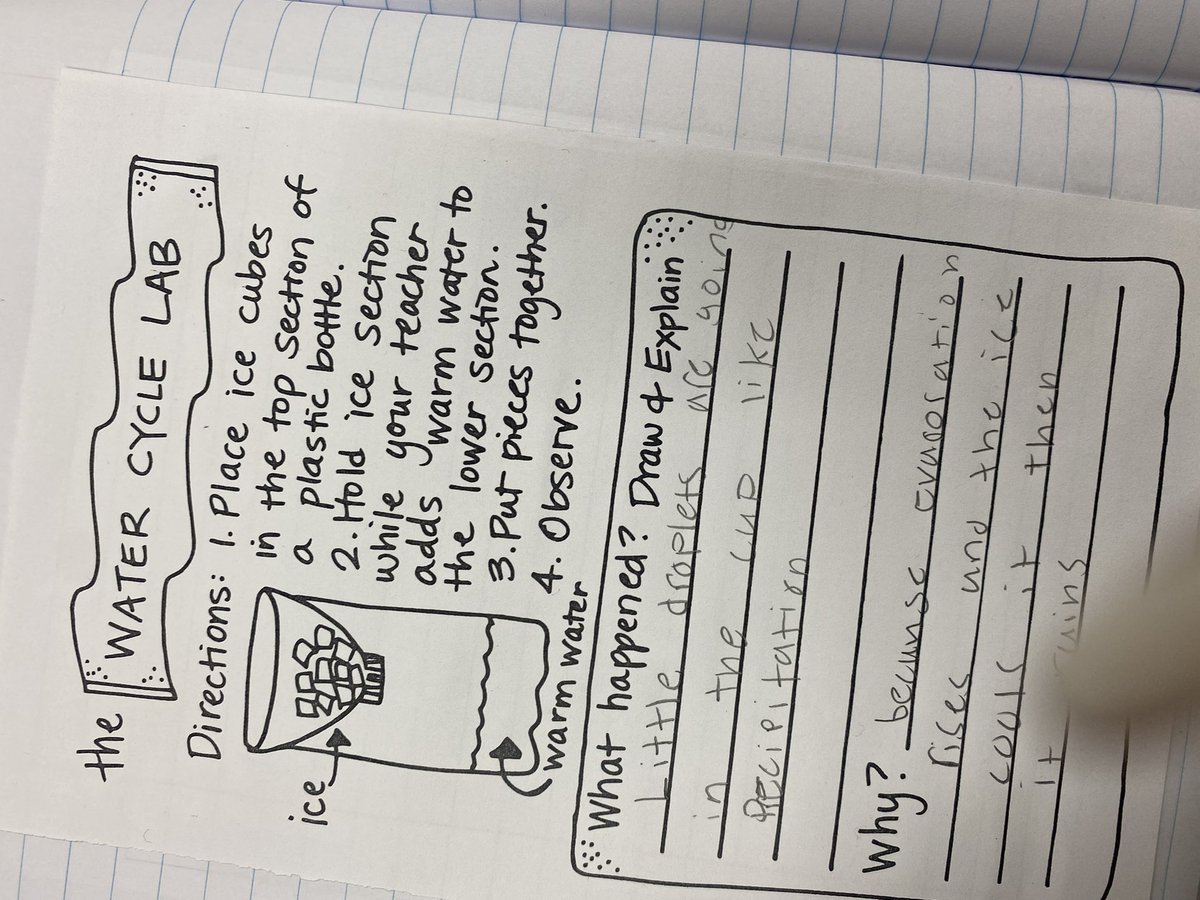 the
WATER CYCLE LAB
Directions: 1. Place ice cubes
in the top section of
a plastic bottle.
2. Hold ice section
while your teacher
adds warm water to
the lower section.
3. Put pieces together.
4. Observe.
ice
warm water
What happened? Draw & Explain
Little droplets are going
in the cup like
Precipitation
Why? becaunse evaporation
rises and the ice
cools it then
it rains